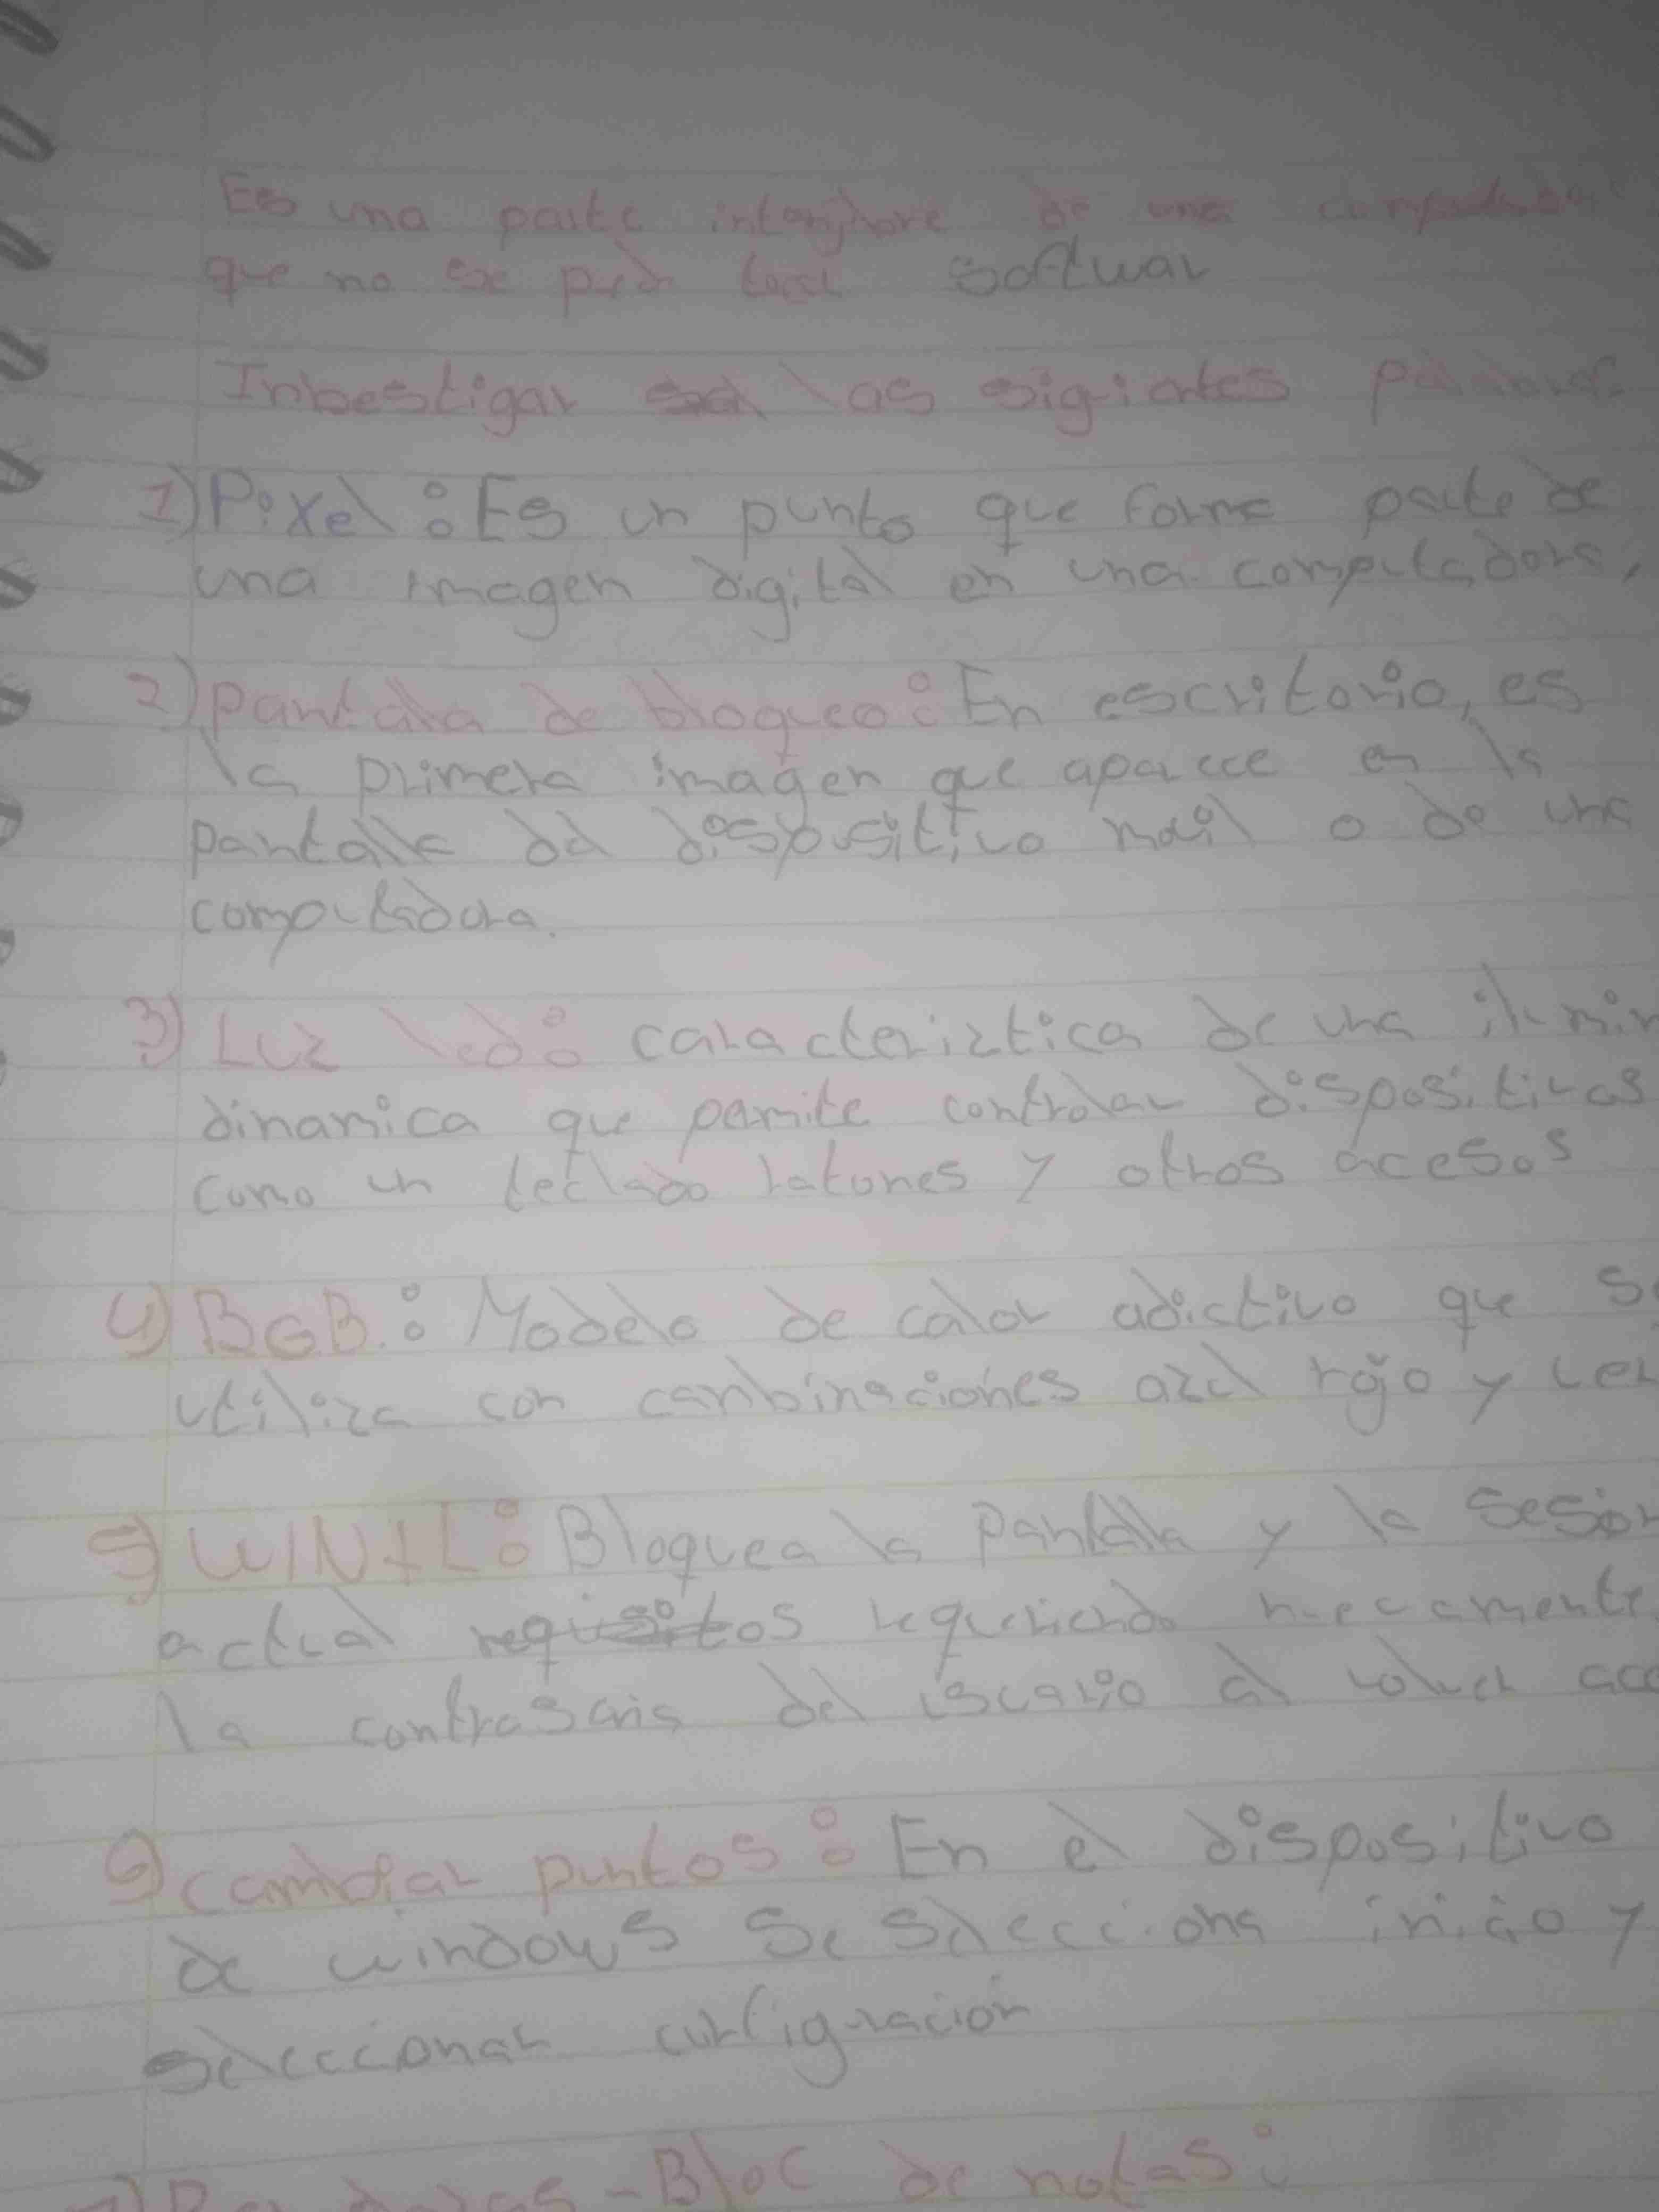 Es una parte de una
que no se Softwar
Inbestigar las sigientes
1) Pixel: Es un punto que forma parte de
una imagen digital en una computadora,
2) pantalla de bloqueo: En escritorio, es
la primera imagen que aparece en la
pantalla del dispositivo o de una
computadora.
3) Luz led: caracteriztica de una
dinamica que permite controlar dispositivos
como un teclado ratones y otros acesos
4) BGB: Modelo de color adictivo que
utiliza con canbinaciones azul rojo y
5) WIN+L: Bloquea la pantalla y la sesion
actual requeriendo
la del al
6) cambiar puntos: En el dispositivo
de windows se selecciona inicio y
seleccionar configuracion
- Bloc de notas: